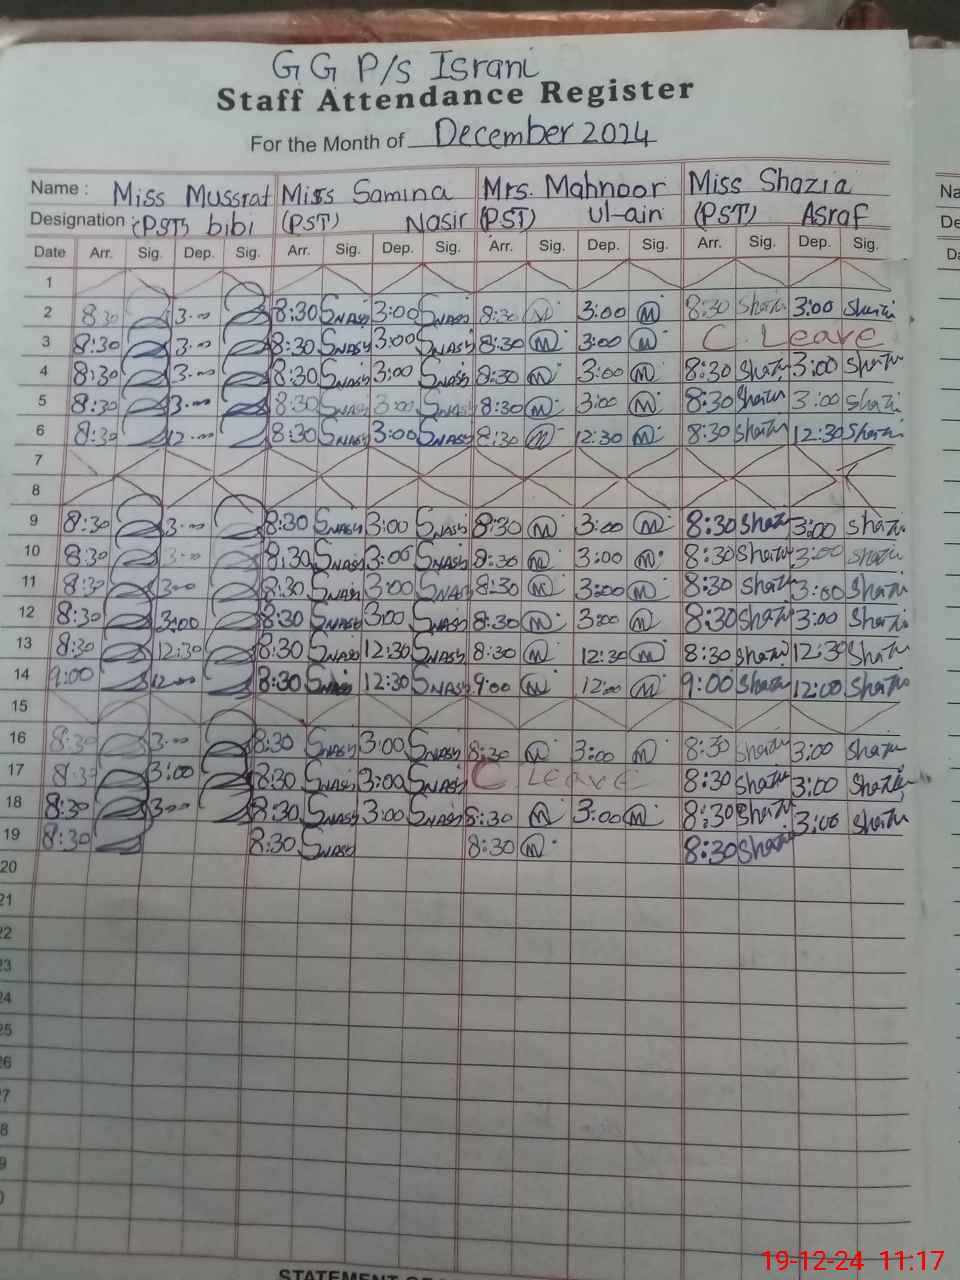 G G P/s Israni
Staff Attendance Register
For the Month of December 2024
Name : Miss Mussrat Miss Samina Mrs. Mahnoor Miss Shazia Na
Designation : (PST) bibi (PST) Nasir (PST) ul-ain (PST) Asraf De
Date Arr. Sig. Dep. Sig. Arr. Sig. Dep. Sig. Arr. Sig. Dep. Sig. Arr. Sig. Dep. Sig. Da
1
2 8:30 3:00 8:30 Snasir 3:00 Snasir 8:30 M 3:00 M 8:30 Shazia 3:00 Shazia
3 8:30 3:00 8:30 Snasir 3:00 Snasir 8:30 M 3:00 M C. Leave
4 8:30 3:00 8:30 Snasir 3:00 Snasir 8:30 M 3:00 M 8:30 Shazia 3:00 Shazia
5 8:30 3:00 8:30 Snasir 3:00 Snasir 8:30 M 3:00 M 8:30 Shazia 3:00 Shazia
6 8:30 12:00 8:30 Snasir 3:00 Snasir 8:30 M 12:30 M 8:30 Shazia 12:30 Shazia
7
8
9 8:30 3:00 8:30 Snasir 3:00 Snasir 8:30 M 3:00 M 8:30 Shazia 3:00 Shazia
10 8:30 3:00 8:30 Snasir 3:00 Snasir 8:30 M 3:00 M 8:30 Shazia 3:00 Shazia
11 8:30 3:00 8:30 Snasir 3:00 Snasir 8:30 M 3:00 M 8:30 Shazia 3:00 Shazia
12 8:30 3:00 8:30 Snasir 3:00 Snasir 8:30 M 3:00 M 8:30 Shazia 3:00 Shazia
13 8:30 12:30 8:30 Snasir 12:30 Snasir 8:30 M 12:30 M 8:30 Shazia 12:30 Shazia
14 9:00 12:00 8:30 Snasir 12:30 Snasir 9:00 M 12:00 M 9:00 Shazia 12:00 Shazia
15
16 8:30 3:00 8:30 Snasir 3:00 Snasir 8:30 M 3:00 M 8:30 Shazia 3:00 Shazia
17 8:30 3:00 8:30 Snasir 3:00 Snasir C. Leave 8:30 Shazia 3:00 Shazia
18 8:30 3:00 8:30 Snasir 3:00 Snasir 8:30 M 3:00 M 8:30 Shazia 3:00 Shazia
19 8:30 8:30 Snasir 8:30 M 8:30 Shazia
20
21
22
23
24
25
26
7
8
9
0
19-12-24 11:17